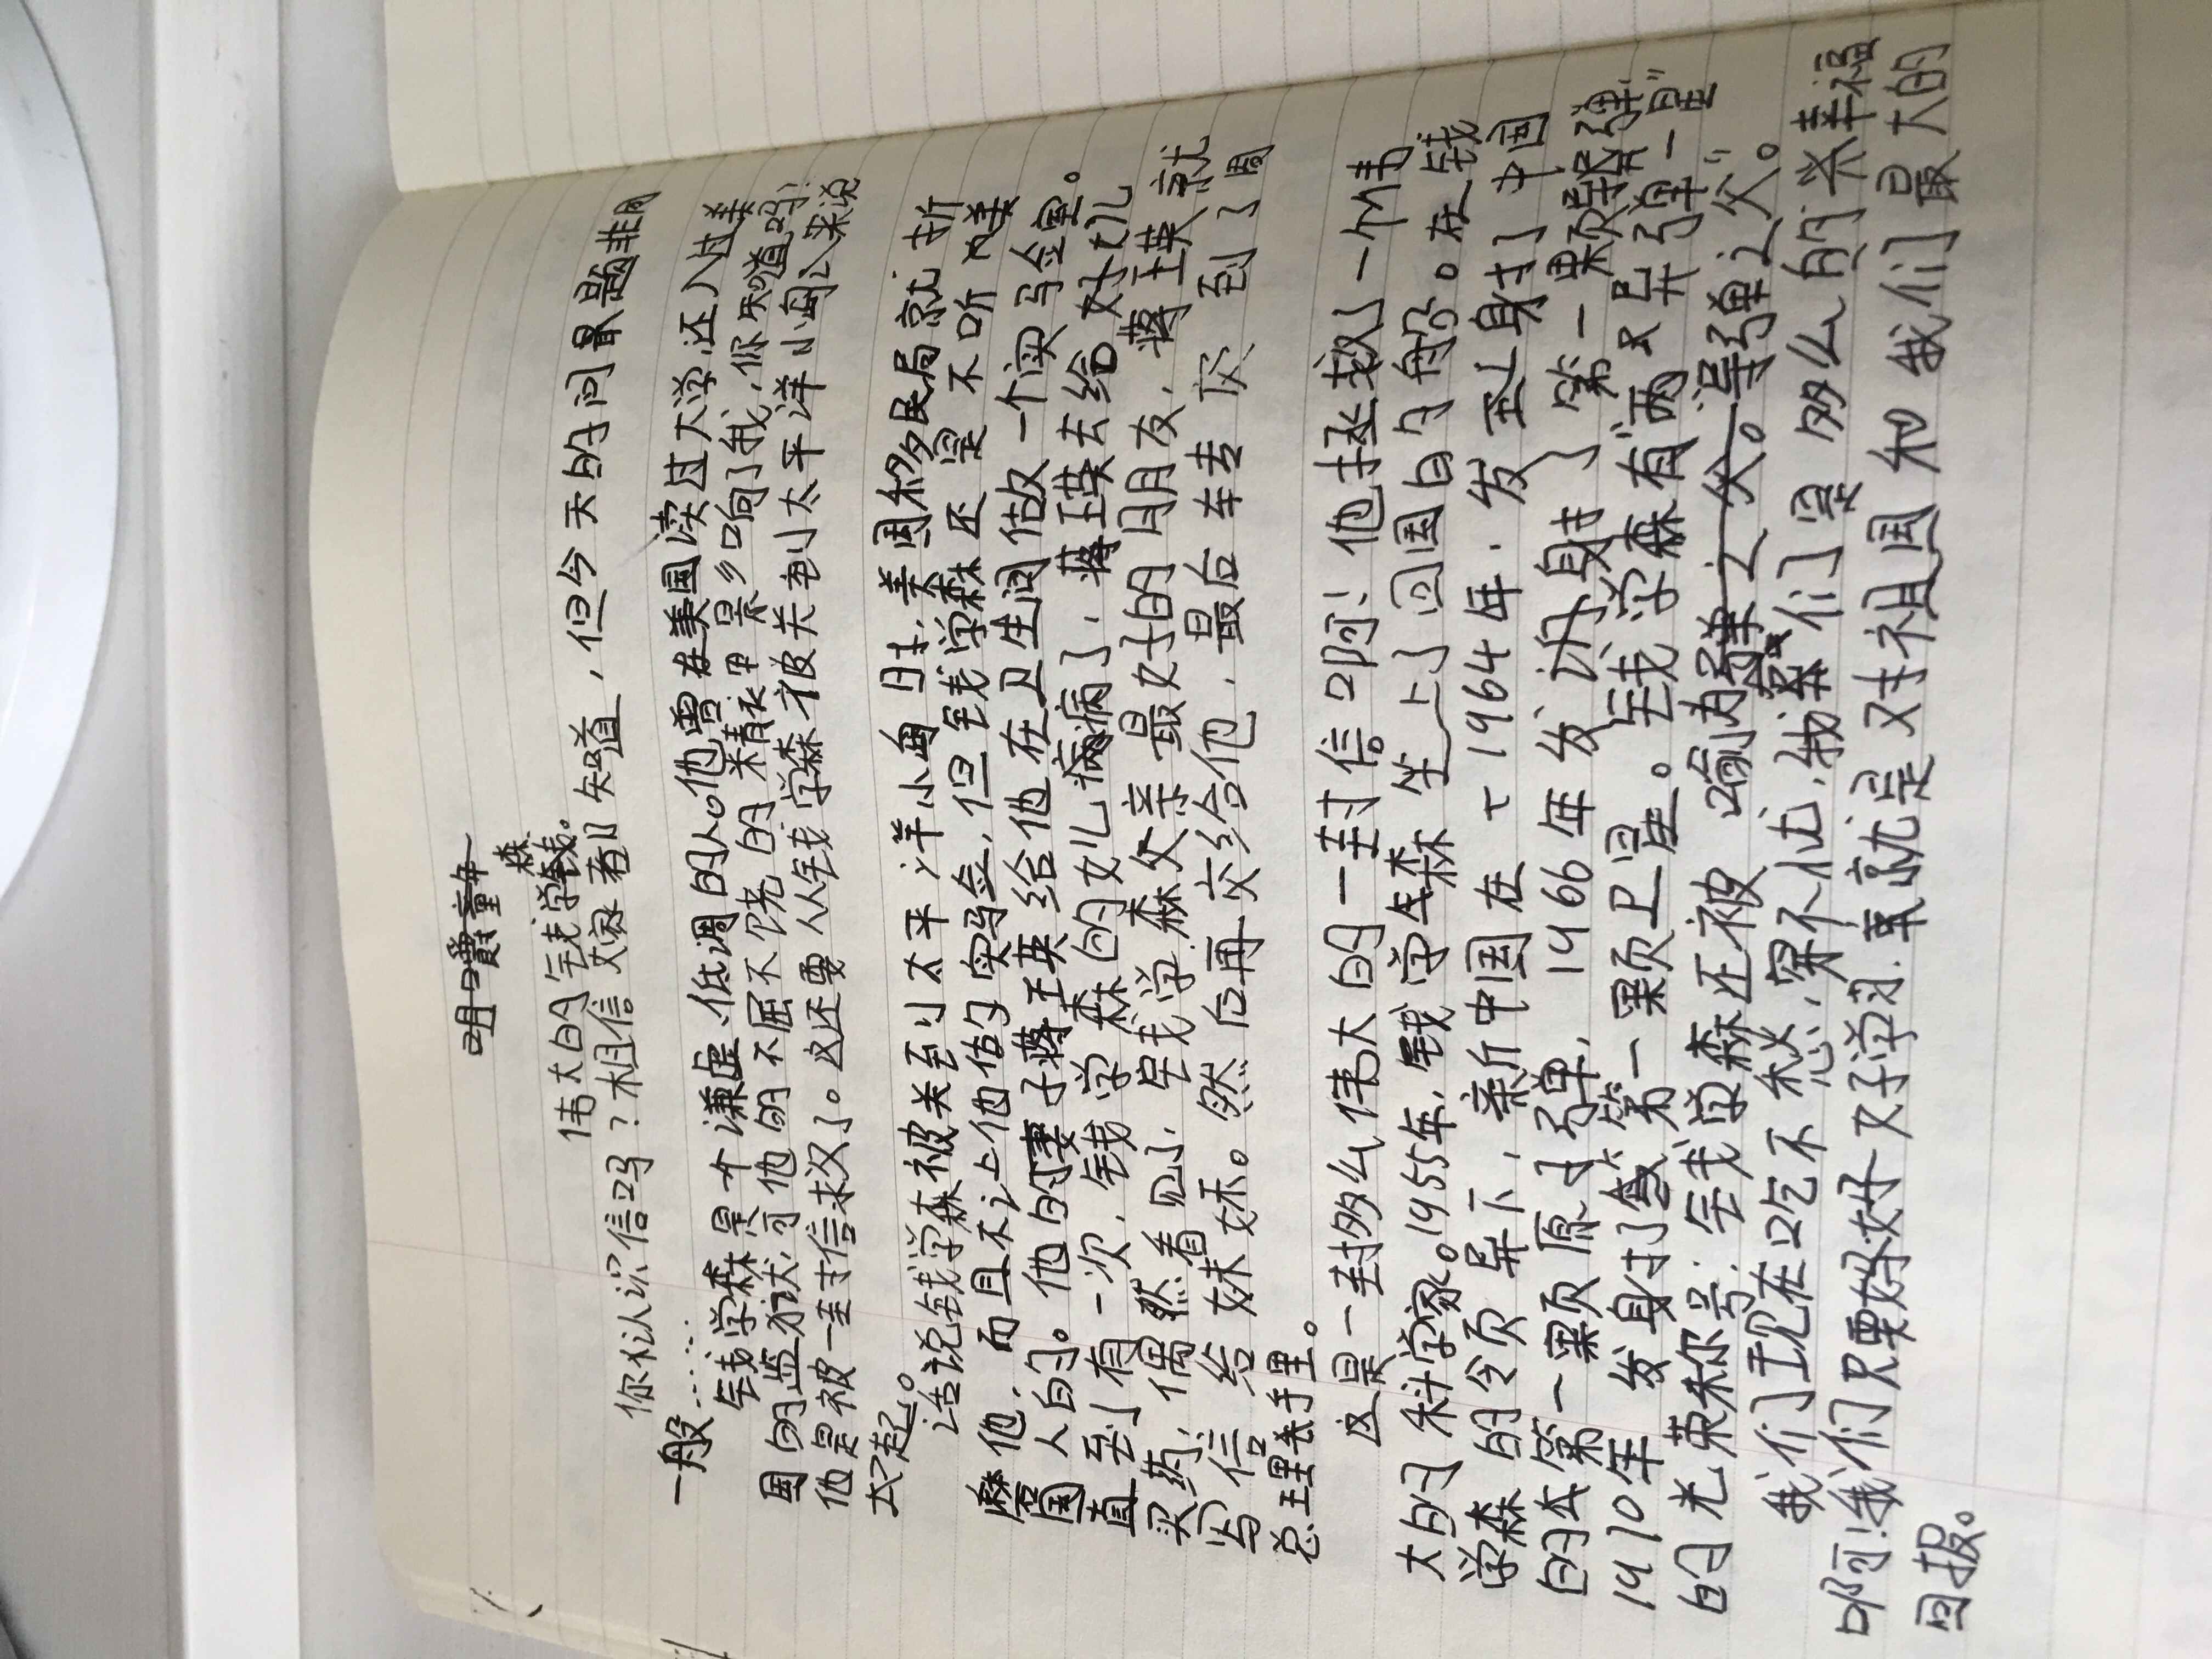 伟大的钱学森。
你认识信吗?相信大家都知道,但今天的问题非同
一般……
钱学森是个谦虚、低调的人。他曾在美国读过大学,还入过美
国的监狱,可他的不屈不饶的精神影响了我,你知道吗!
他是被一封信求了。这还要从钱学森被关到小太平洋小岛说
起。
话说钱学森被关到太平洋小岛时,美国移民局就折
磨他,而且不让他估实验,但钱学森还是不听美
国人的。他的妻子蒋王英给他在卫生间估故一个实马金室。
直到有一次,钱学森的女儿病了,蒋王英去给女儿
买药,偶然看见了,钱学森父亲最好的朋友,蒋王英就
写信给妹妹。然后再交给他,最后车专灰到了周
总理手里。
这是一封多么伟大的一封信啊!他拯救了一个伟
大的科学家。1955年,钱学森坐上了回国的船。在钱
学森的令页导下,新中国在1964年,发射了中国
的第一颗原子弹,1966年发射了第一颗导弹
1970年发射第一颗卫星。钱学森有“两弹一星”
的光荣称号,钱学森还被喻为“导弹之父”。
我们现在吃不愁,穿不忧,我们是多么的幸福
啊!我们只要好好学习,就是对祖国和我们最大的
回报。